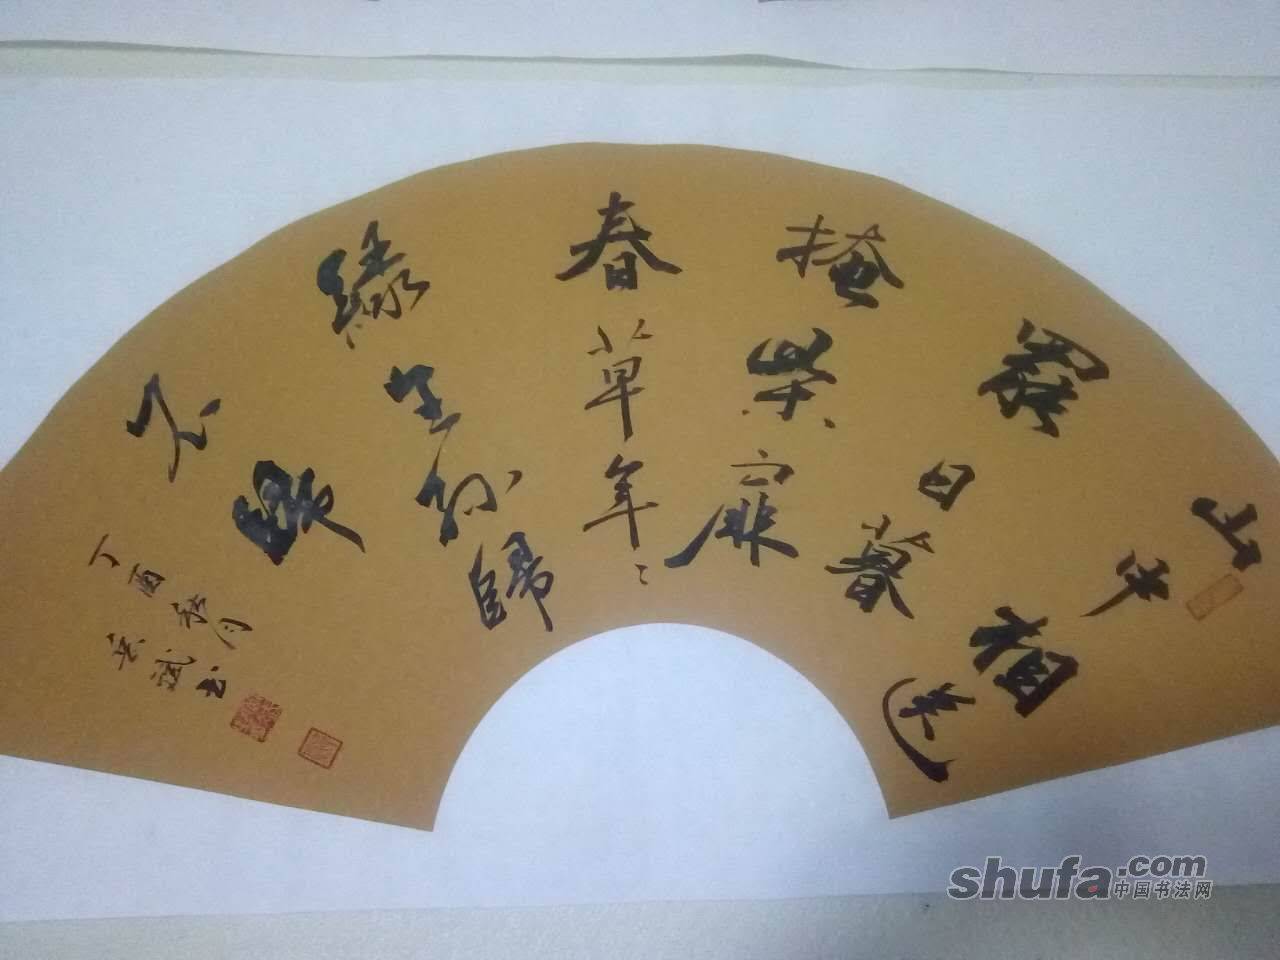 山中相送
罷日暮
掩柴扉
春草年々
綠王孫歸
不歸
丁酉秋月
斌书
shufa.com
中国书法网